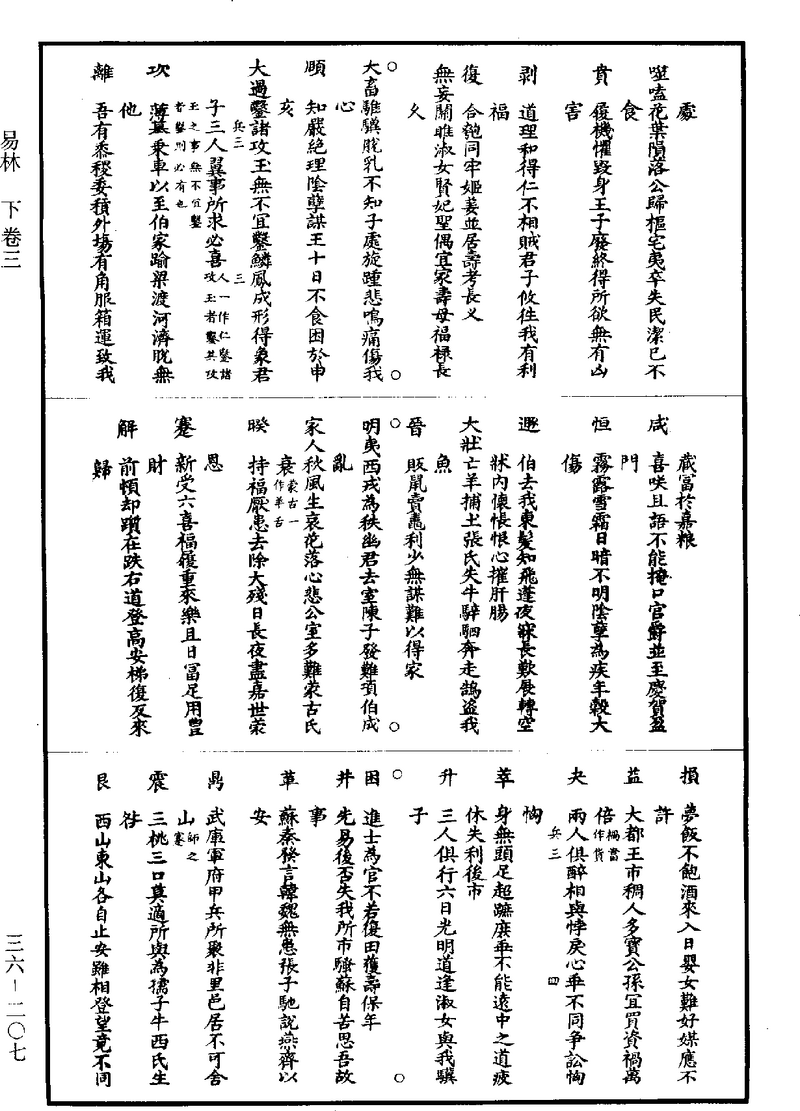 處
噬嗑花葉隕落公歸樞宅夷卒失民潔已不
食
賁　履機懼毀身王子廢終得所欲無有凶
害
剥　道理和得仁不相賊君子攸往我有利
福
復　合匏同牢姬姜並居壽考長乂
無妄關雎淑女賢妃聖偶宜家壽母福祿長
久
大畜騅驥脫乳不知子處旋踵悲鳴痛傷我
心
頤　知嚴絶理陰孽謀王十日不食困於申
亥
大過鑿諸攻玉無不宜鑿鱗鳳成形得象君
兵三　三
子三人翼事所求必喜人一作仁鑿諸攻玉者鑿其攻
玉之事無不宜鑿者鑿則必有也
坎　薄暮乘車以至伯家踰梁渡河濟脫無
他
離　吾有黍稷委積外場有角服箱運致我
藏富於嘉粮
咸　喜咲且語不能掩口官爵並至慶賀盈
門
恒　霧露雪霜日暗不明陰孽為疾年穀大
傷
遯　伯去我東髮如飛蓬夜寐長歎展轉空
牀內懷悵恨心摧肝腸
大壯亡羊捕土張氏失牛騂駰奔走鵠盜我
魚
晉　販鼠賣鼃利少無謀難以得家
明夷西戎為秩幽君去室陳子發難項伯成
亂
家人秋風生哀花落心悲公室多難蒙古氏
衰蒙古一作羊舌
睽　持福厭患去除大殘日長夜盡嘉世蒙
恩
蹇　新受六喜福履重來樂且日富足用豊
財
解　前頓却躓在跌右道登高安梯復反來
歸
損　夢飯不飽酒來入口嬰女難好媒應不
許
益　大都王市稠人多寶公孫宜買資禍萬
倍禍當作貨
夬　兩人俱醉相與悖戾心乖不同争訟恟
兵三　四
恟
萃　身無頭足超蹠䧹乖不能遠中之道疲
休失利後市
升　三人俱行六日光明道逢淑女與我驥
子
困　進士為官不若復田獲壽保年
井　先易後否失我所市騷蘇自苦思吾故
事
革　蘇秦發言韓魏無患張子馳說燕齊以
安
鼎　武庫軍府甲兵所聚非里邑居不可舍
山師之蹇
震　三桃三口莫適所與為孺子牛西氏生
咎
艮　西山東山各自止安雖相登望竟不同
易林　下卷三
三六－二〇七